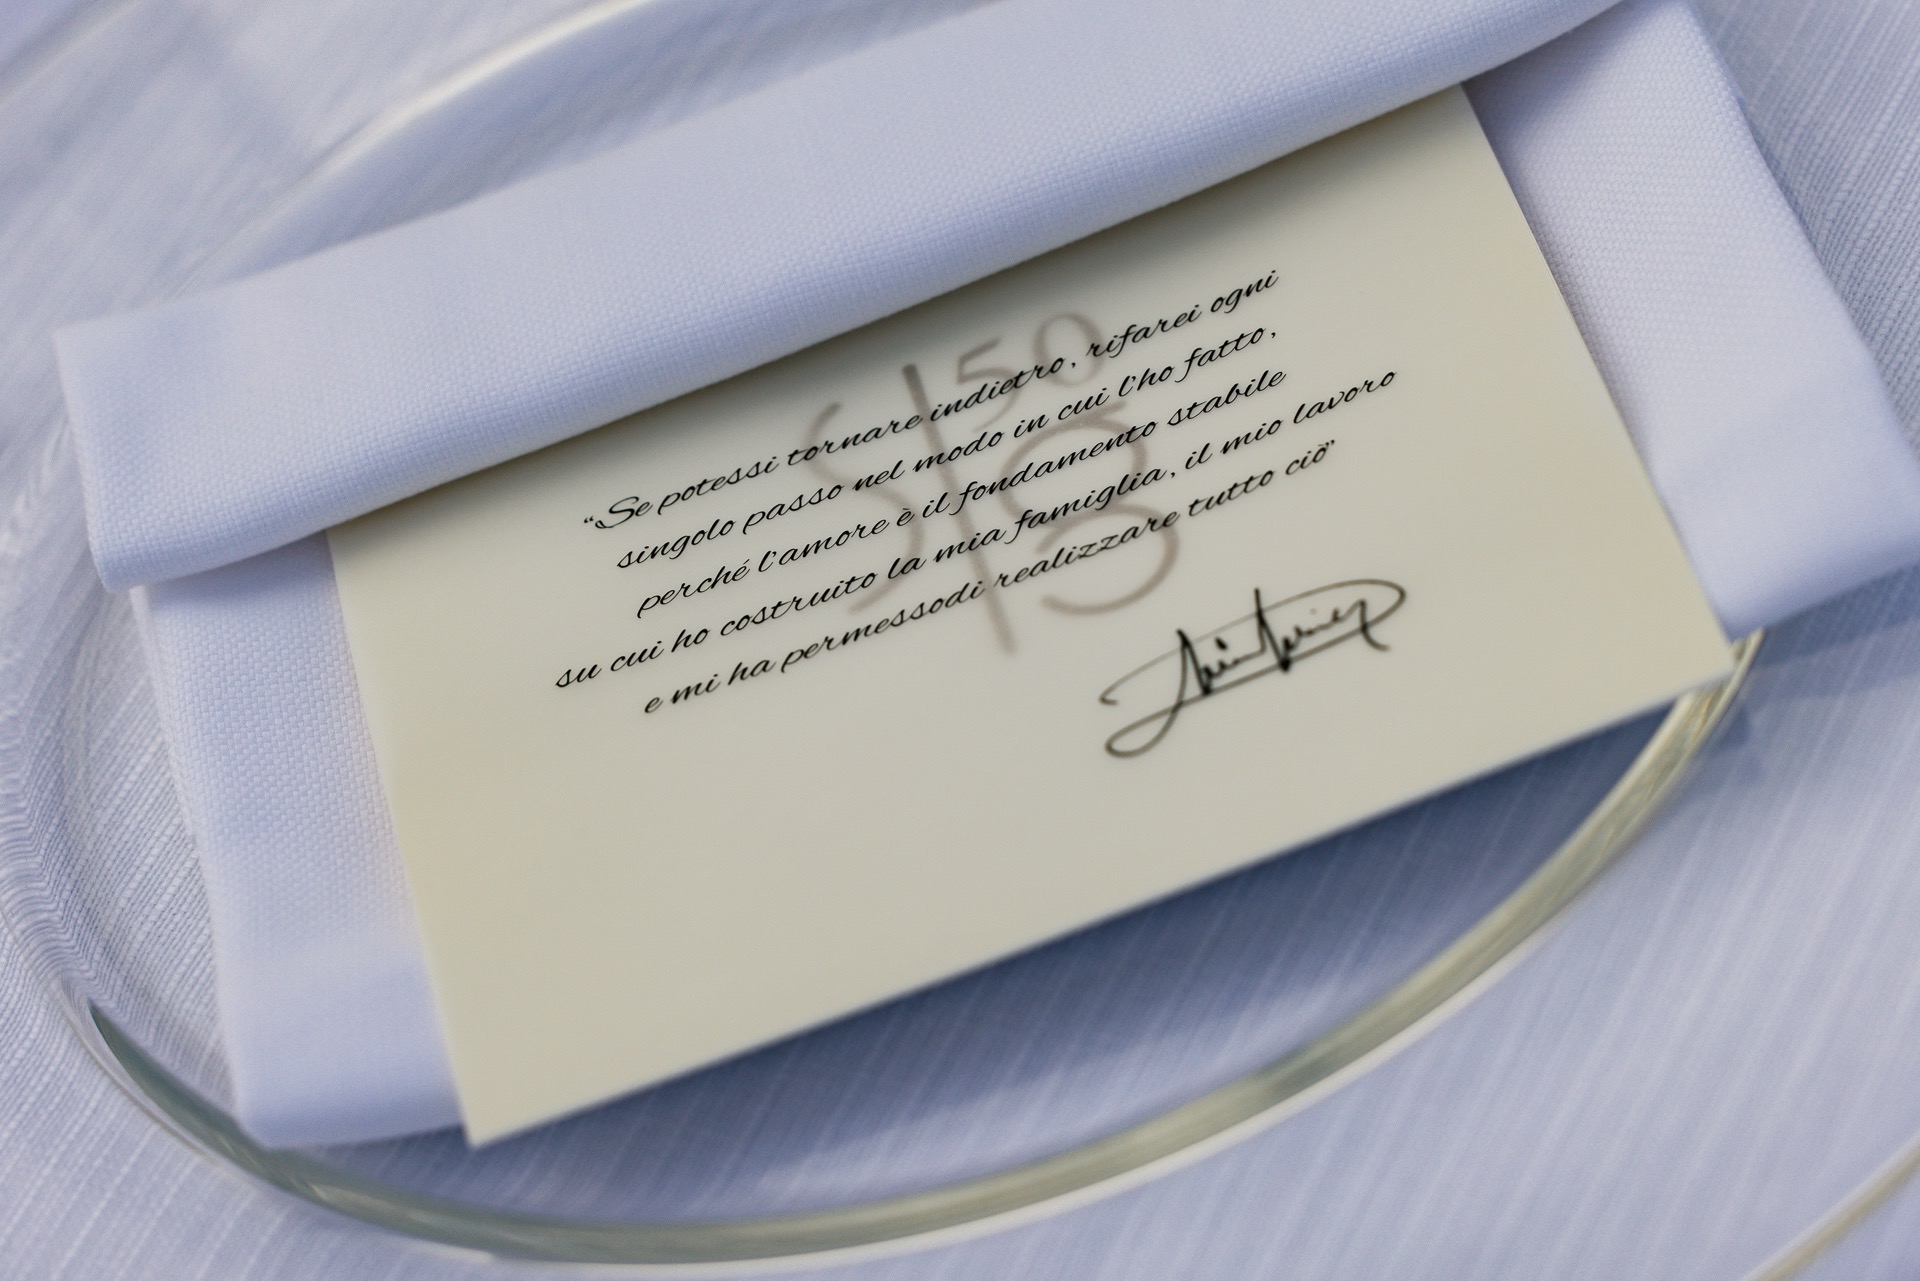 50
“Se potessi tornare indietro, rifarei ogni
singolo passo nel modo in cui l'ho fatto,
perché l'amore è il fondamento stabile
su cui ho costruito la mia famiglia, il mio lavoro
e mi ha permessodi realizzare tutto ciò”